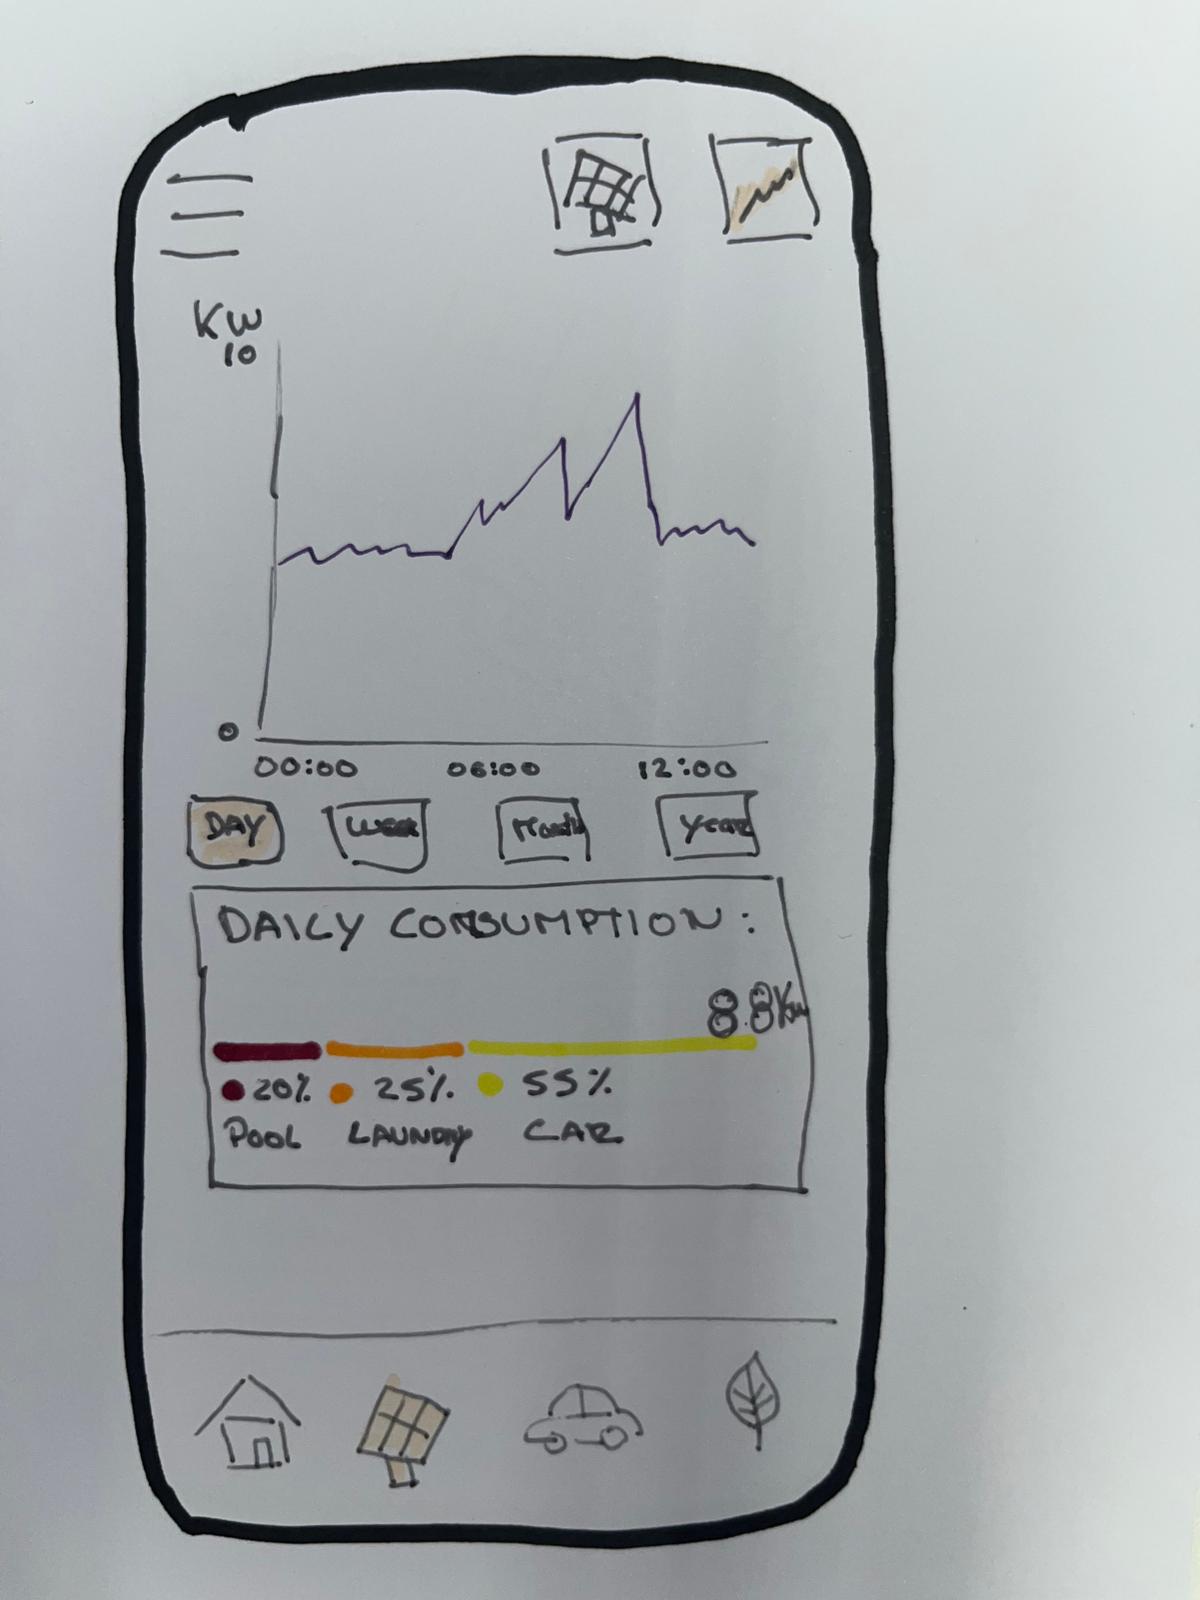 KW
10
0
00:00 06:00 12:00
DAY Week Month Year
DAILY CONSUMPTION:
8.8Kw
20% 25% 55%
POOL LAUNDRY CAR